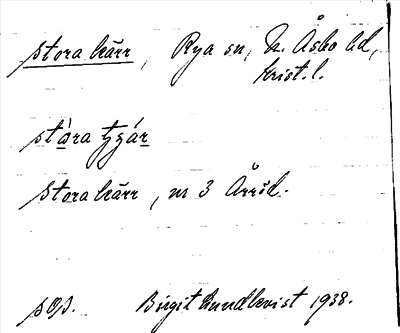 stora kärr, Rya sn, N. Åsbo hd,
Krist. l.
stòra tzár
Stora kärr, nr 3 Årröd.
sOp. Birgit Rundkvist 1938.